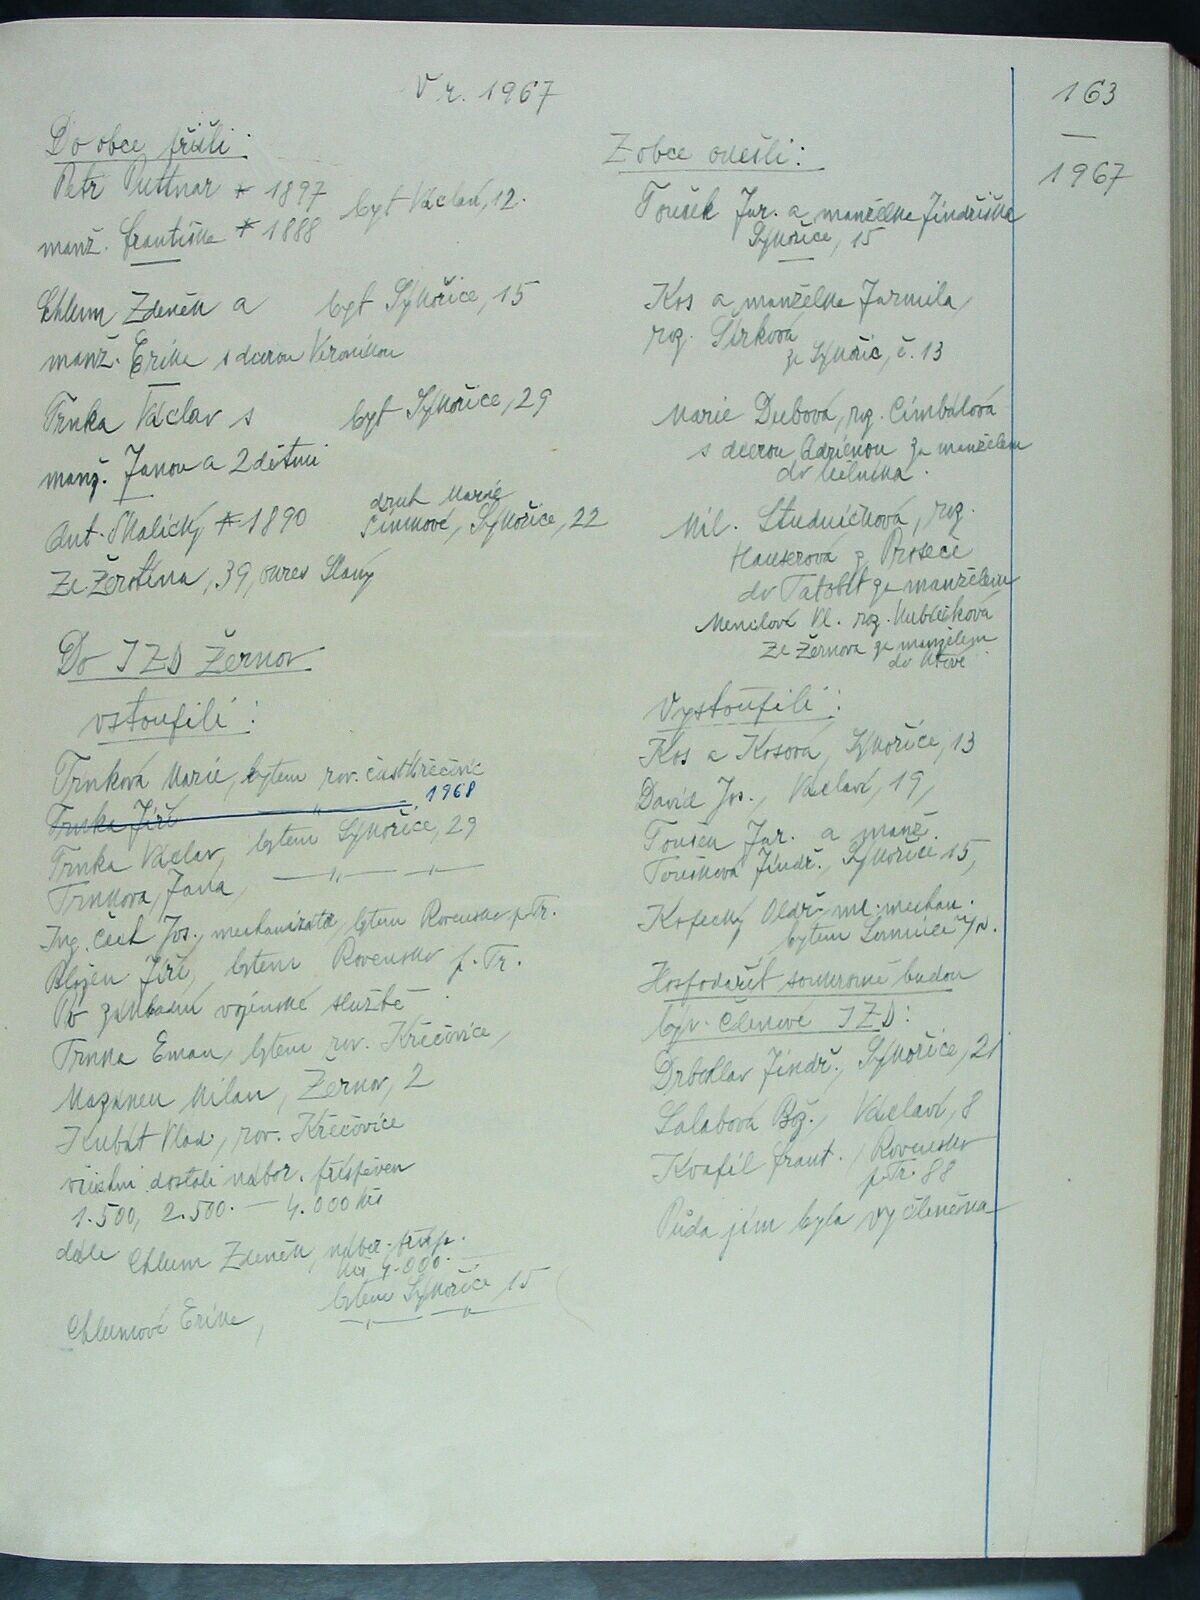 V r. 1967
163
1967
Do obce přišli:
Petr Puttnar * 1897
manž. Františka * 1888
byt Václaví, 12.
Chlum Zdeněk a byt Sýkořice, 15
manž. Erika s dcerou Veronikou
Trnka Václav s byt Sýkořice, 29
manž. Janou a 2 dětmi
Ant. Skalický * 1890
druh Marie
Šimkové, Sýkořice, 22
Ze Žerotína, 39, okres Slaný
Do JZD Žernov
vstoupili:
Trnková Marie, bytem rov. část Křečovic
Trnka Jiří — " — 1968
Trnka Václav, bytem Sýkořice, 29
Trnková Jana, — " —
Ing. Čech Jos., mechanizátor, bytem Rovensko p. Tr.
Jiří, bytem Rovensko p. Tr.
Po základní vojenské službě
Trnka Eman, bytem rov. Křečovice,
Mazánek Milan, Žernov, 2
Kubát Vlad., rov. Křečovice
všichni dostali nábor. příspěvek
1.500, 2.500. — 4.000 Kčs
dále Chlum Zdeněk, nábor. přísp.
Kčs 4.000.
bytem Sýkořice, 15
Chlumová Erika, — " — " —
Z obce odešli:
Toušek Jar. a manželka Jindřiška
Sýkořice, 15
Kos a manželka Jarmila,
roz. Sirková
ze Sýkořic, č. 13
Marie Dubová, roz. Cimbálová
s dcerou Adrienou za manželem
do Mělníka.
Mil. Studničková, roz.
Hauserová z Proseče
do Tatobit za manželem
Menclová Vl. roz. Kubíčková
ze Žernova za manželem
do
Vystoupili:
Kos a Kosová, Sýkořice, 13
David Jos., Václaví, 19,
Toušek Jar. a manž.
Toušková Jindř., Sýkořice 15,
Kopecký Oldř. ml. mechan.
bytem Lomnice n/P.
Hospodařit soukromě budou
býv. členové JZD:
Drbohlav Jindř., Sýkořice, 21
Salabová Bož., Václaví, 8
Kvapil Frant., Rovensko
p. Tr. 88
Půda jim byla vyčleněna